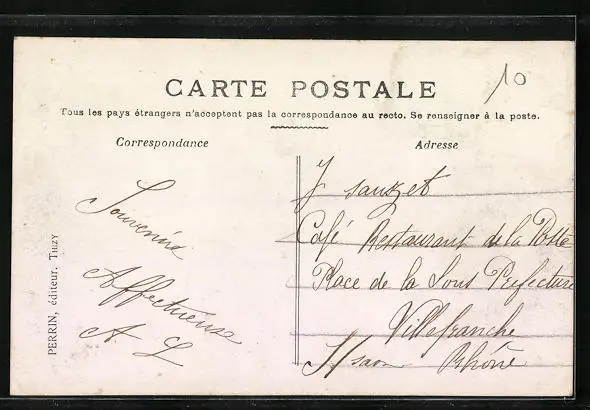 10
CARTE POSTALE
Tous les pays étrangers n'acceptent pas la correspondance au recto. Se renseigner à la poste.
Correspondance
Souvenirs
Affectueux
A. L
PERRIN, éditeur, THIZY
Adresse
J Sauzet
Café Restaurant de la Poste
Place de la Sous Préfecture
Villefranche
s/ Rhône